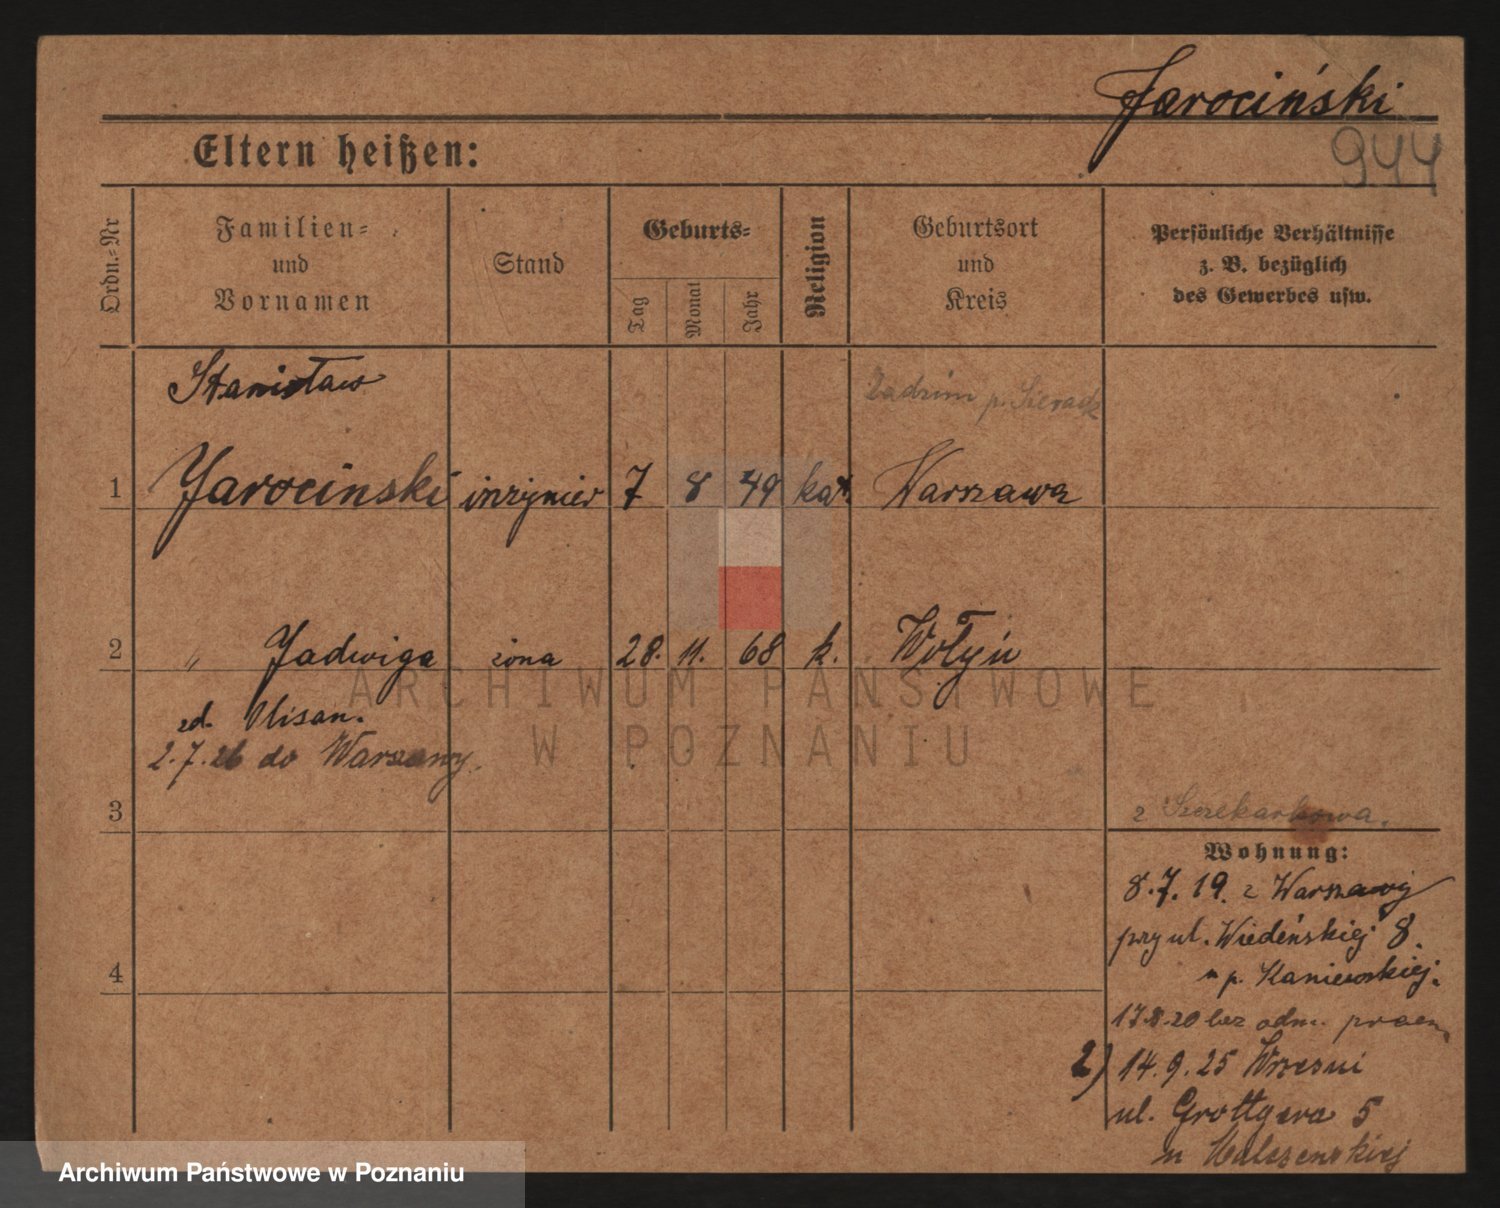 Jarociński
944
Eltern heißen:
Ordn.=Nr
Familien=
und
Vornamen
Stand
Geburts=
Tag
Monat
Jahr
Religion
Geburtsort
und
Kreis
Persönliche Verhältnisse
z. B. bezüglich
des Gewerbes usw.
Stanisław
Zadzim p. Sieradz
1 Jarocinski inżynier 7 8 49 kat. Warszawa
2 " Jadwiga żona 28. 11. 68 k. Wołyń
zd. Olisan.
2.7.26 do Warszawy.
3
z Szczekarkowa.
Wohnung:
8.7.19. z Warszawy
przy ul. Wiedeńskiej 8.
u p. Kaniewskiej.
4
17.8.20 bez odm.
2) 14.9.25 Wrześni
ul. Grottgera 5
u
ARCHIWUM PAŃSTWOWE
W POZNANIU
Archiwum Państwowe w Poznaniu